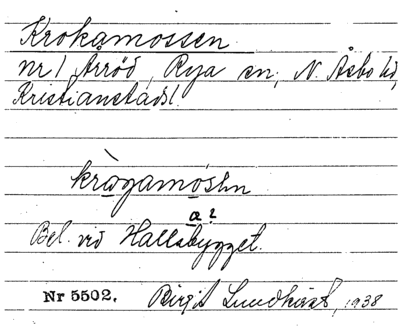 Krokamossen
nr 1 Arröd, Rya sn, N. Åsbo hd,
Kristianstads l.
krògamósən
a?
Bel. vid Hallabygget.
Nr 5502. Birgit Lundkvist, 1938